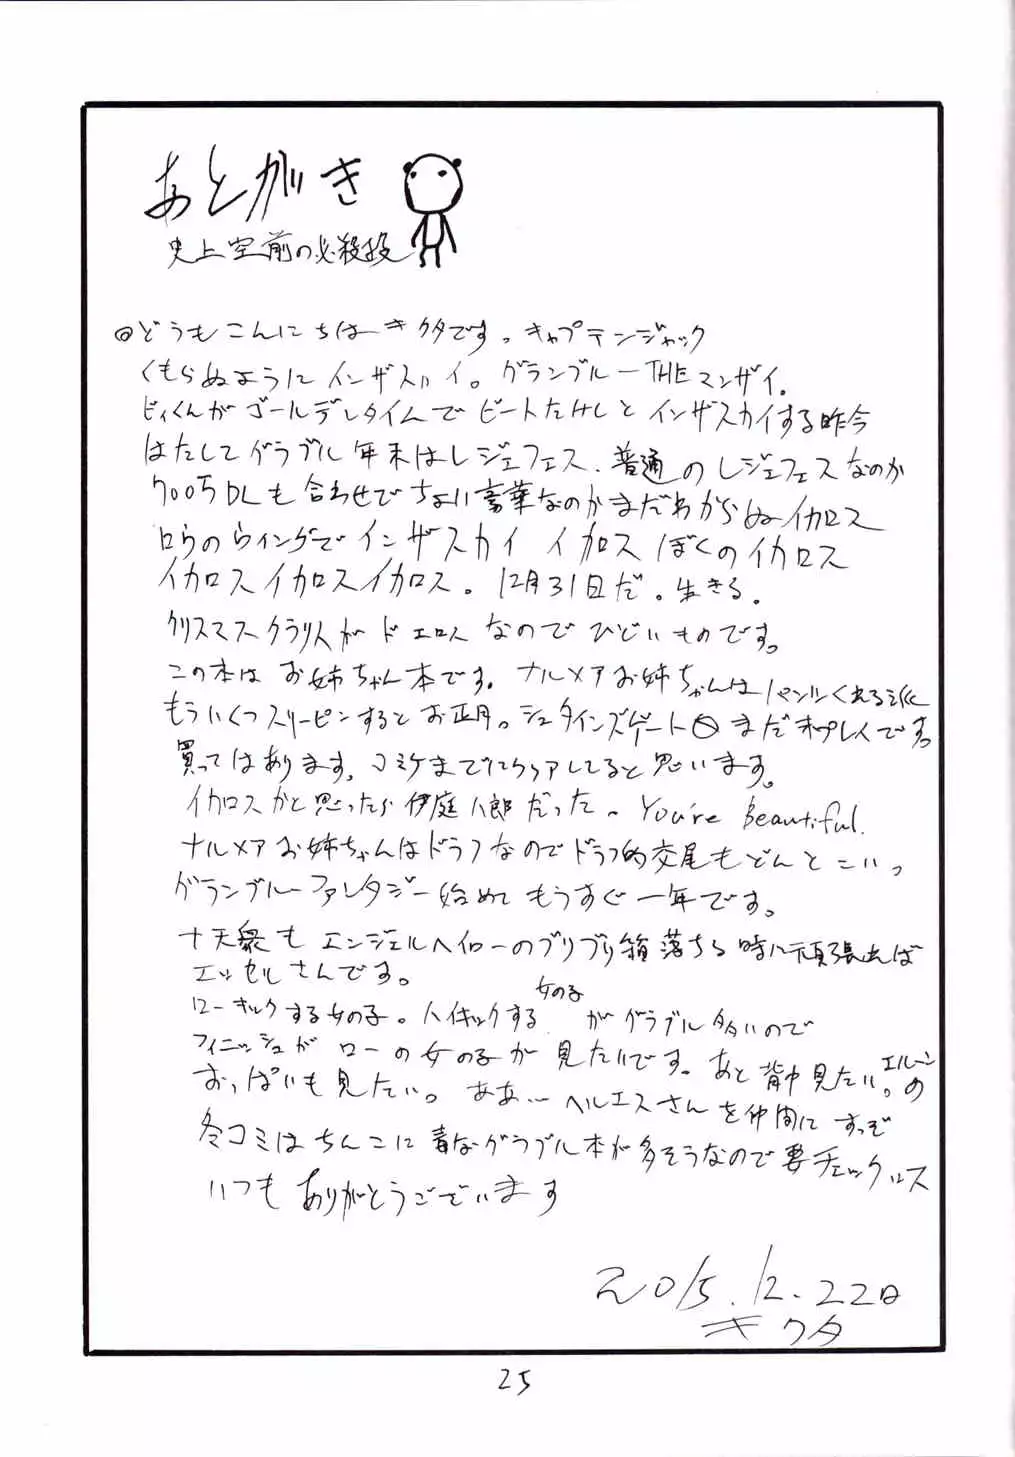 あとがき
史上空前の必殺技
◎どうもこんにちはーキクタです。キャプテンジャック
くもらぬようにインザスカイ。グランブルーTHEマンザイ。
ビィくんがゴールデンタイムでビートたけしとインザスカイする昨今
はたしてグラブル年末はレジェフェス、普通のレジェフェスなのか
700万DLも合わせでちょい豪華なのかまだわからぬイカロス
ロウのウィングでインザスカイ イカロス ぼくのイカロス
イカロスイカロスイカロス。12月31日だ。生きる。
クリスマスクラリスがドエロスなのでひどいものです。
この本はお姉ちゃん本です。ナルメアお姉ちゃんはパンツくれる派
もういくつスリーピンするとお正月。シュタインズゲート0まだ未プレイです。
買ってはあります、コミケまでにクリアしてると思います。
イカロスかと思ったら伊庭八郎だった〜You're Beautiful.
ナルメアお姉ちゃんはドラフなのでドラフ的交尾もどんとこいっ
グランブルーファンタジー始めてもうすぐ一年です。
十天衆もエンジェルヘイローのブリブリ箱落ちる時に頑張れば
エッセルさんです。
ローキックする女の子。ハイキックする女の子がグラブル多いので
フィニッシュがローの女の子が見たいです。あと背中見たい。エルーンの
おっぱいも見たい。ああ…ヘルエスさんを仲間にすっぞ
冬コミはちんこに毒なグラブル本が多そうなので要チェックッス
いつもありがとうございます
2015.12.22日
キクタ
25